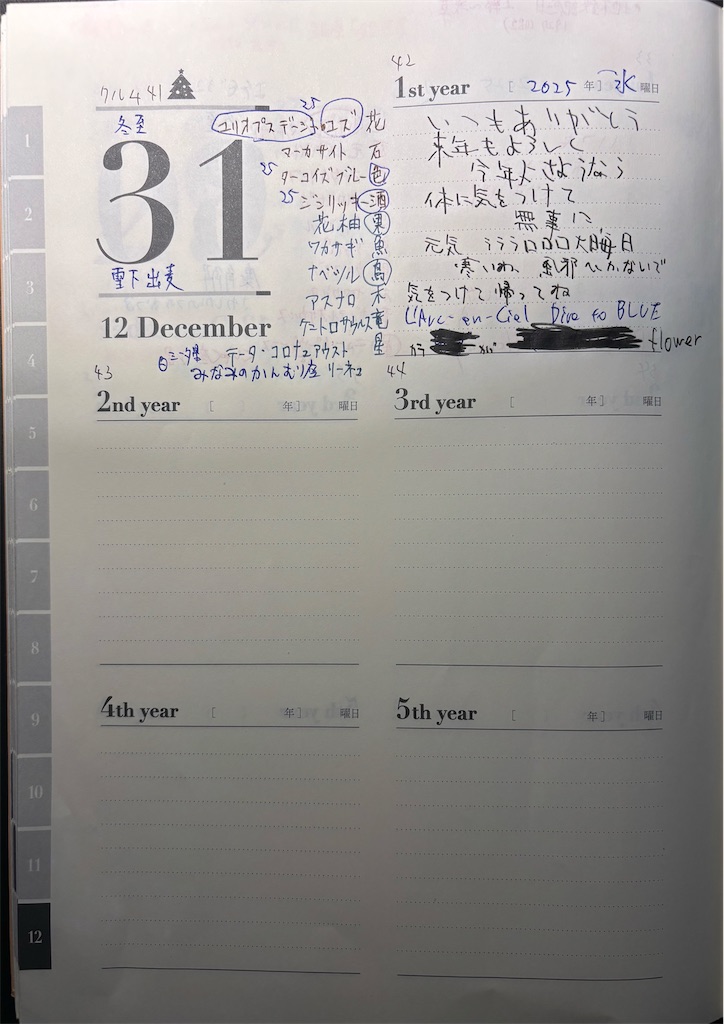 42
クル441
冬至
31
雪下出麦
12 December
25
ユリオプスデージー ユズ 花
マーカサイト 石
25 ターコイズブルー 色
25 ジンリッキー 酒
花柚 果
ワカサギ 魚
ナベヅル 鳥
アスナロ 木
ケントロサウルス 竜
データ・コロナェアウスト 星
みなみのかんむり座 リーネェ
1st year [ 2025 年] 水 曜日
いつもありがとう
来年もよろしく
今年度さようなら
体に気をつけて
無事に
元気 ラララロロロ大晦日
寒いね 風邪ひかないで
気をつけて帰ってね
L'Arc-en-Ciel Dive to BLUE
から が flower
43
2nd year [ 年] 曜日
44
3rd year [ 年] 曜日
4th year [ 年] 曜日
5th year [ 年] 曜日
1
2
3
5
6
7
8
9
10
11
12